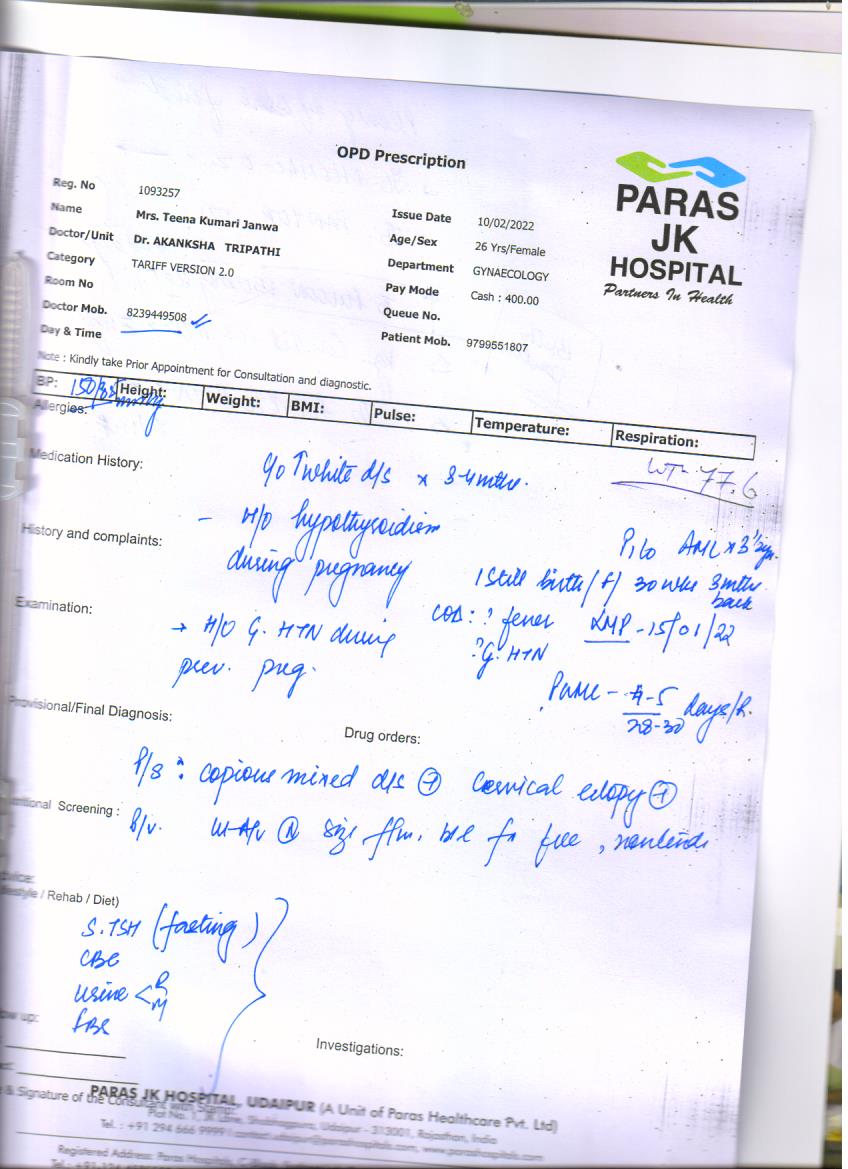 OPD Prescription
PARAS
JK
HOSPITAL
Partners In Health
Reg. No 1093257
Name Mrs. Teena Kumari Janwa
Doctor/Unit Dr. AKANKSHA TRIPATHI
Category TARIFF VERSION 2.0
Room No
Doctor Mob. 8239449508
Day & Time
Issue Date 10/02/2022
Age/Sex 26 Yrs/Female
Department GYNAECOLOGY
Pay Mode Cash : 400.00
Queue No.
Patient Mob. 9799551807
Note : Kindly take Prior Appointment for Consultation and diagnostic.
BP: 150/85 mmHg Height: Weight: BMI: Pulse: Temperature: Respiration:
Allergies:
WT- 77.6
Medication History:
c/o ↑ white d/s x 3-4 mths.
- H/O hypothyroidism
during pregnancy
History and complaints:
P1L0 AML x 3½ yrs.
1 still birth/(f) 30 wks 3 mths back
COD: ? fever LMP - 15/01/22
? G. HTN
Examination:
→ H/O G. HTN during
prev. preg.
PMC - 4-5 days/R.
28-30
Provisional/Final Diagnosis:
Drug orders:
P/S : copious mixed d/s + Cervical ectopy +
Screening :
P/v. ut-A/v N size firm, b/l fx free, nontender
/ Rehab / Diet)
S.TSH (fasting)
CBC
urine < R
M
FBS
up:
Investigations:
& Signature of the Consultant with Stamp:
PARAS JK HOSPITAL, UDAIPUR (A Unit of Paras Healthcare Pvt. Ltd)
Plot No. 1, JK Lane, Shobhagpura, Udaipur - 313001, Rajasthan, India
Tel. : +91 294 666 9999 | contact.udaipur@parashospitals.com, www.parashospitals.com
Registered Address: Paras Hospitals,